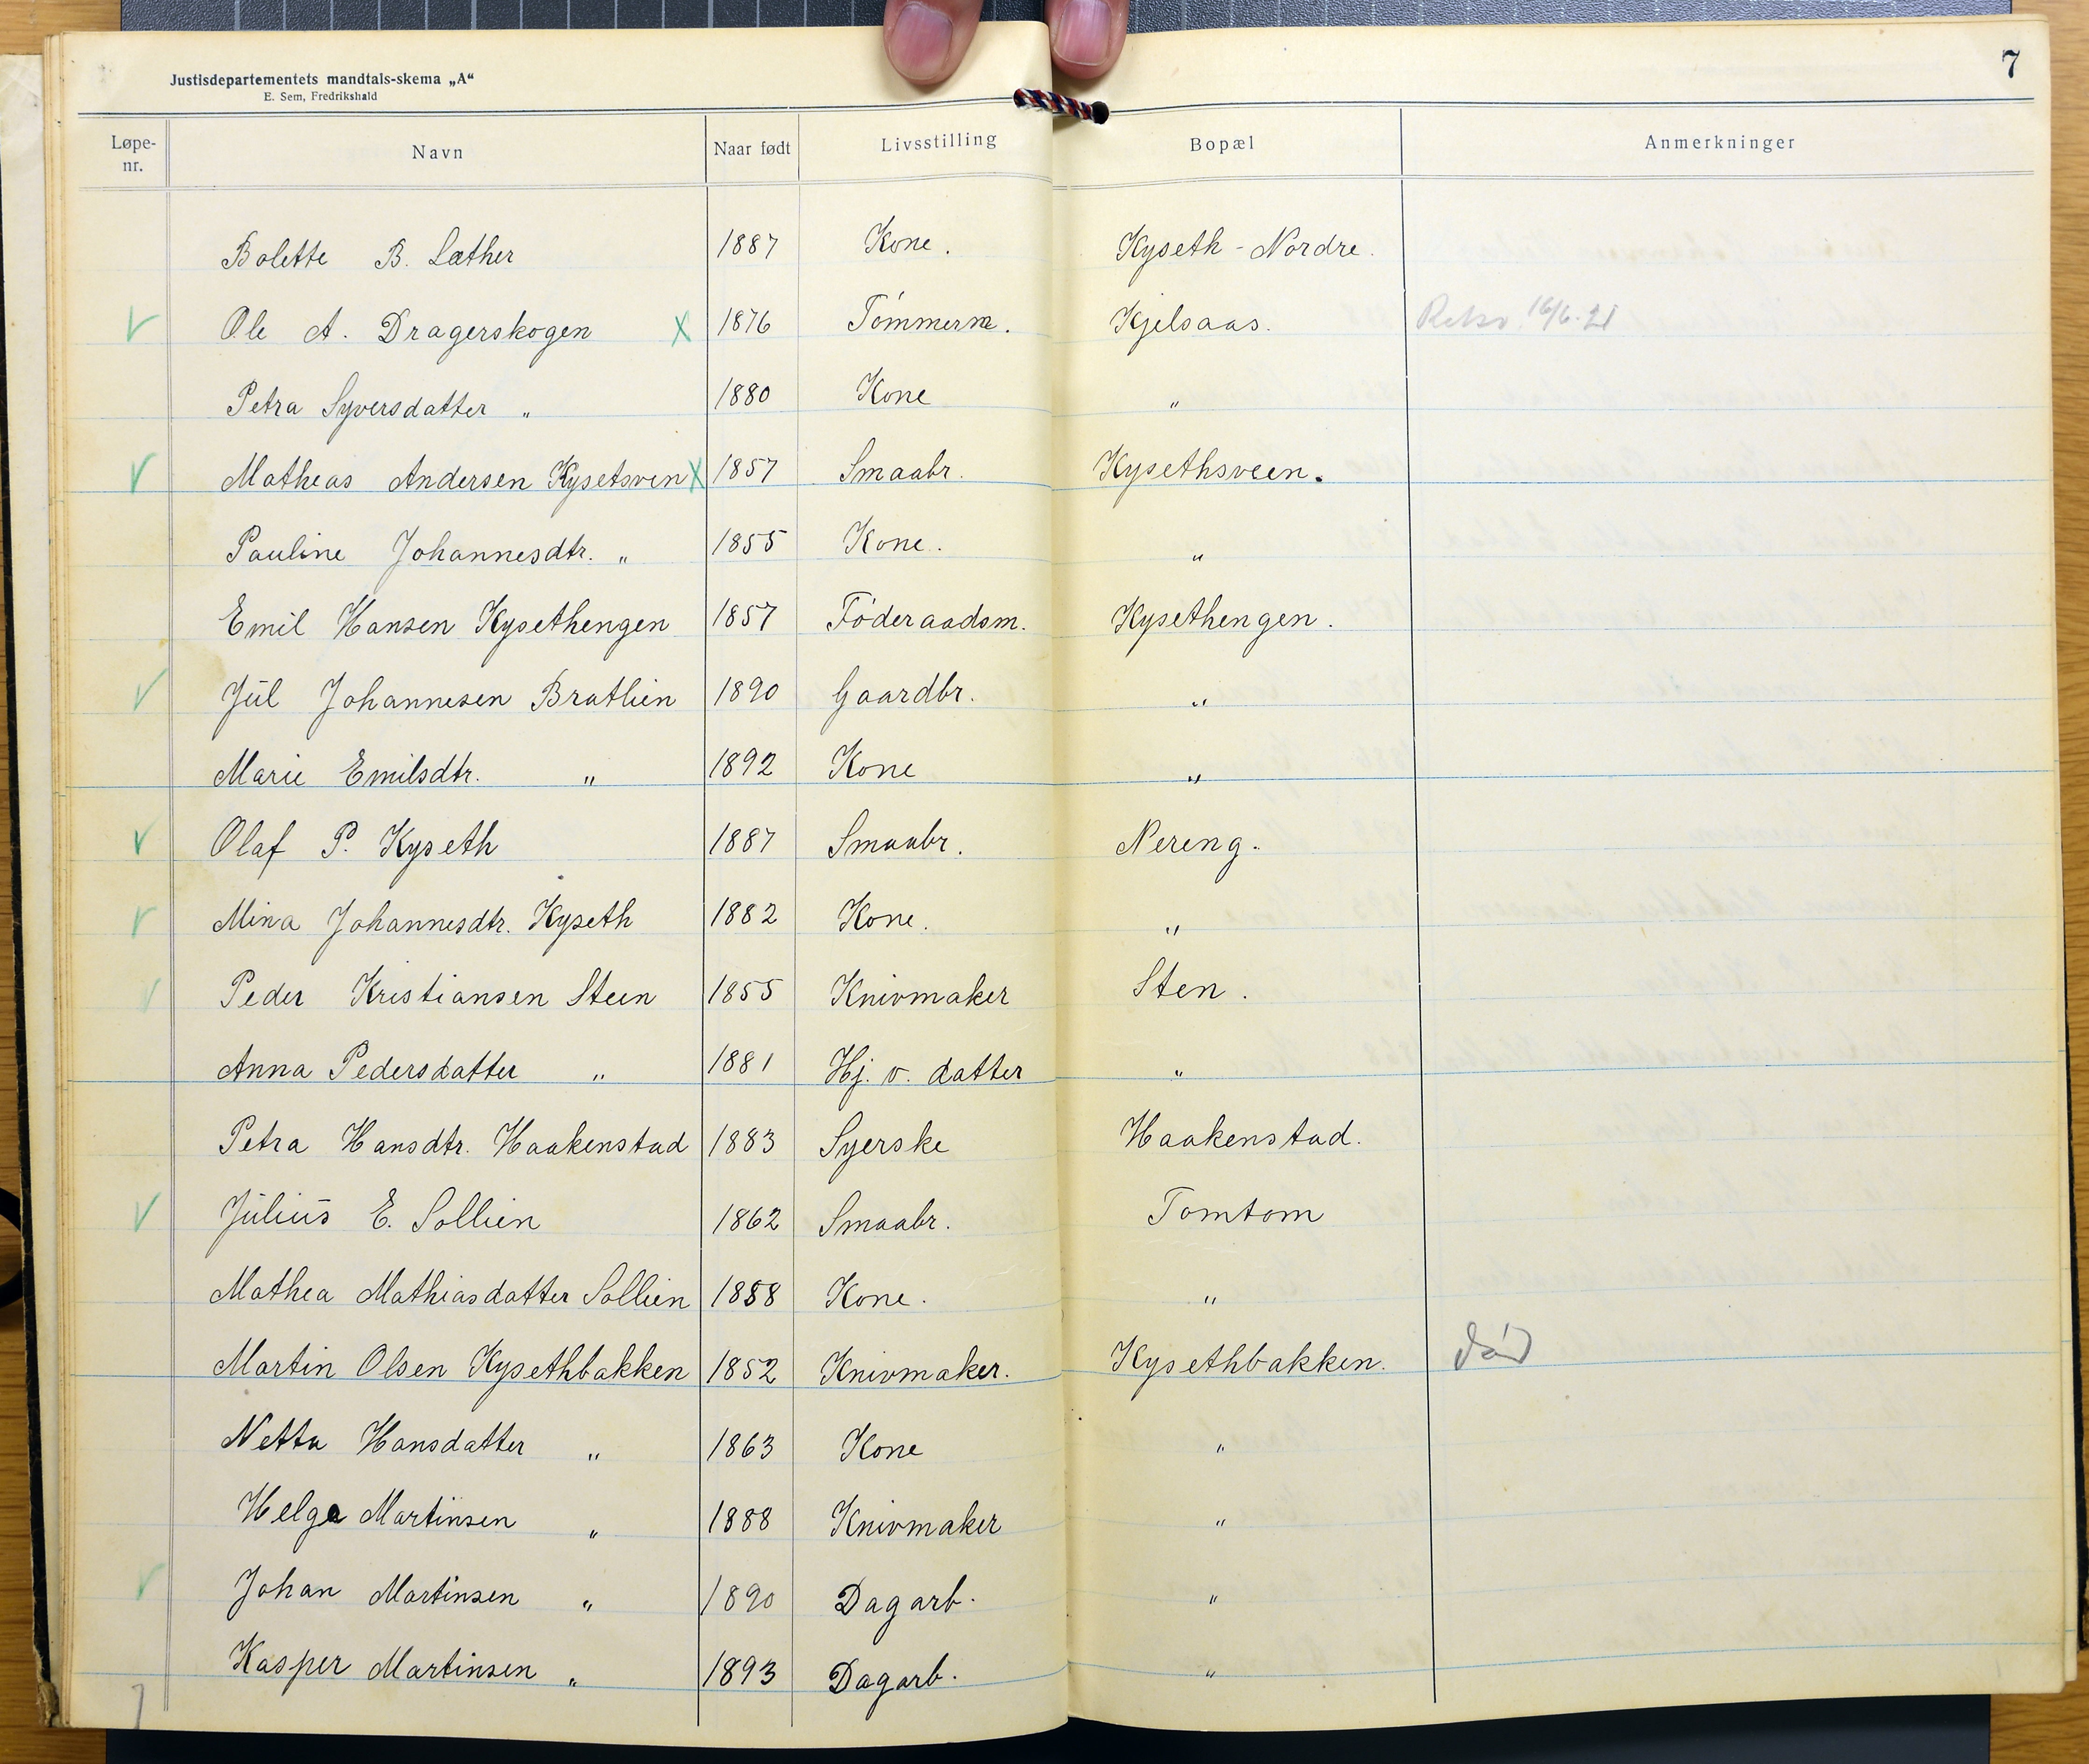 7
Justisdepartementets mandtals-skema „A“
E. Sem, Fredrikshald
Løpe-nr. Navn Naar født Livsstilling Bopæl Anmerkninger
Bolette B. Læther 1887 Kone. Kyseth - Nordre.
Ole A. Dragerskogen x 1876 Tømmerm. Kjelsaas. 16/6. 21
Petra Syversdatter „ 1880 Kone „
Matheas Andersen Kysetsven x 1857 Smaabr. Kysethsveen.
Pauline Johannesdtr. „ 1855 Kone. „
Emil Hansen Kysethengen 1857 Føderaadsm. Kysethengen.
Jul Johannesen Bratlien 1890 Gaardbr. „
Marie Emilsdtr. „ 1892 Kone „
Olaf P. Kyseth 1887 Smaabr. Nereng.
Mina Johannesdtr. Kyseth 1882 Kone. „
Peder Kristiansen Steen 1855 Knivmaker Sten.
Anna Pedersdatter „ 1881 Hj. v. datter „
Petra Hansdtr. Haakenstad 1883 Syerske Haakenstad.
Julius E. Sollien 1862 Smaabr. Tomtom
Mathea Mathiasdatter Sollien 1858 Kone. „
Martin Olsen Kysethbakken 1852 Knivmaker. Kysethbakken. død
Netta Hansdatter „ 1863 Kone „
Helge Martinsen „ 1888 Knivmaker „
Johan Martinsen „ 1890 Dagarb. „
Kasper Martinsen „ 1893 Dagarb. „
7